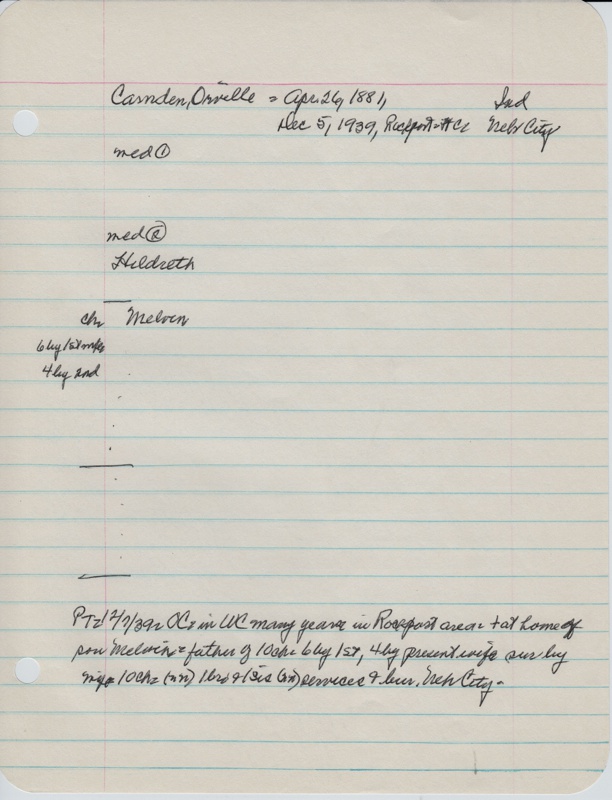 Camden, Orville = Apr. 26, 1881, Ind
Dec 5, 1939, Rockport = HC Nebr City
med ①
med ②
Hildreth
ch Melvin
6 by 1st mge
4 by 2nd
PT= 12/7/39= OC= in UC many years in Rockport area= + at home of
son Melvin = father of 10 ch= 6 by 1st, 4 by present wife sur by
10 ch= (nn) 1 bro + 1 sis (nn) services & bur. Nebr City-